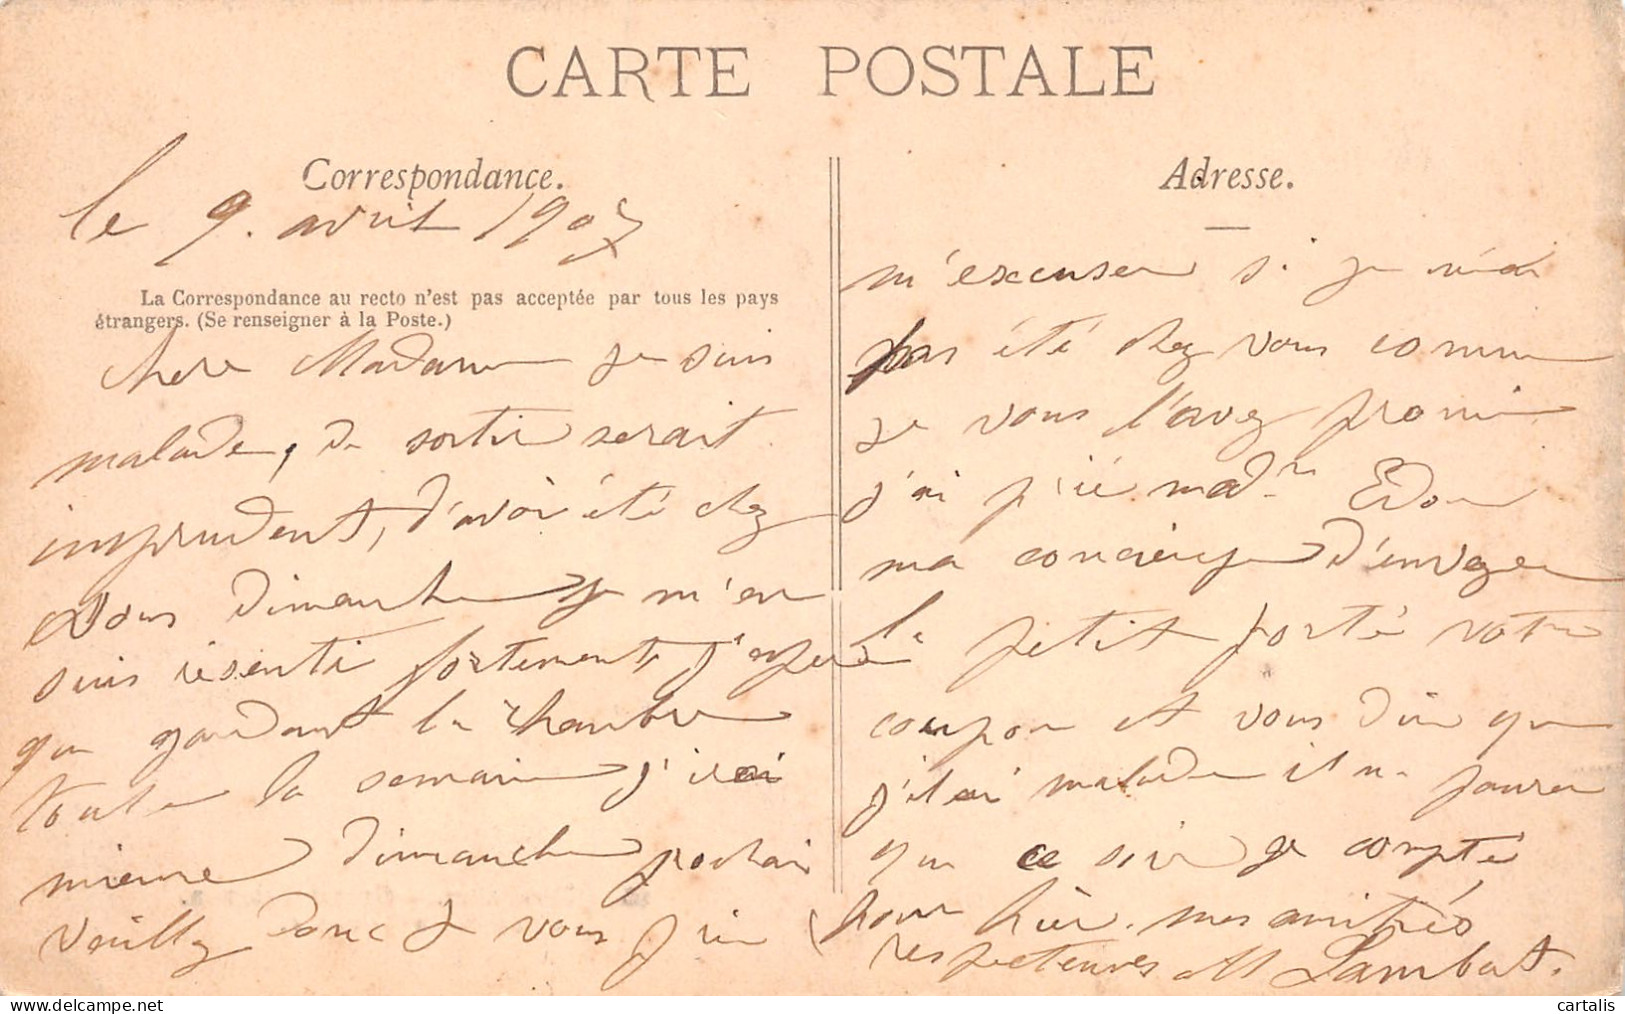 CARTE POSTALE
Correspondance.
le 9. avril 1907
La Correspondance au recto n'est pas acceptée par tous les pays
étrangers. (Se renseigner à la Poste.)
chere Madame je suis
malade, de sortir serait
imprudent, d'avoir été chez
vous dimanche je m'en
suis résenti fortement, j'espere
que gardant la chambre
toute la semaine j'irai
mieux dimanche prochain
veuillez donc je vous prie
Adresse.
m'excuser si je n'ai
pas été chez vous comme
je vous l'avez promi
j'ai prié mad.me Edou
ma concierge d'envoyer
la petit porté votre
coupon et vous dire que
j'étai malade il na pourra
que ce soir je compté
pour hier. mes amitiés
respectueuses M Lambert.
cartalis